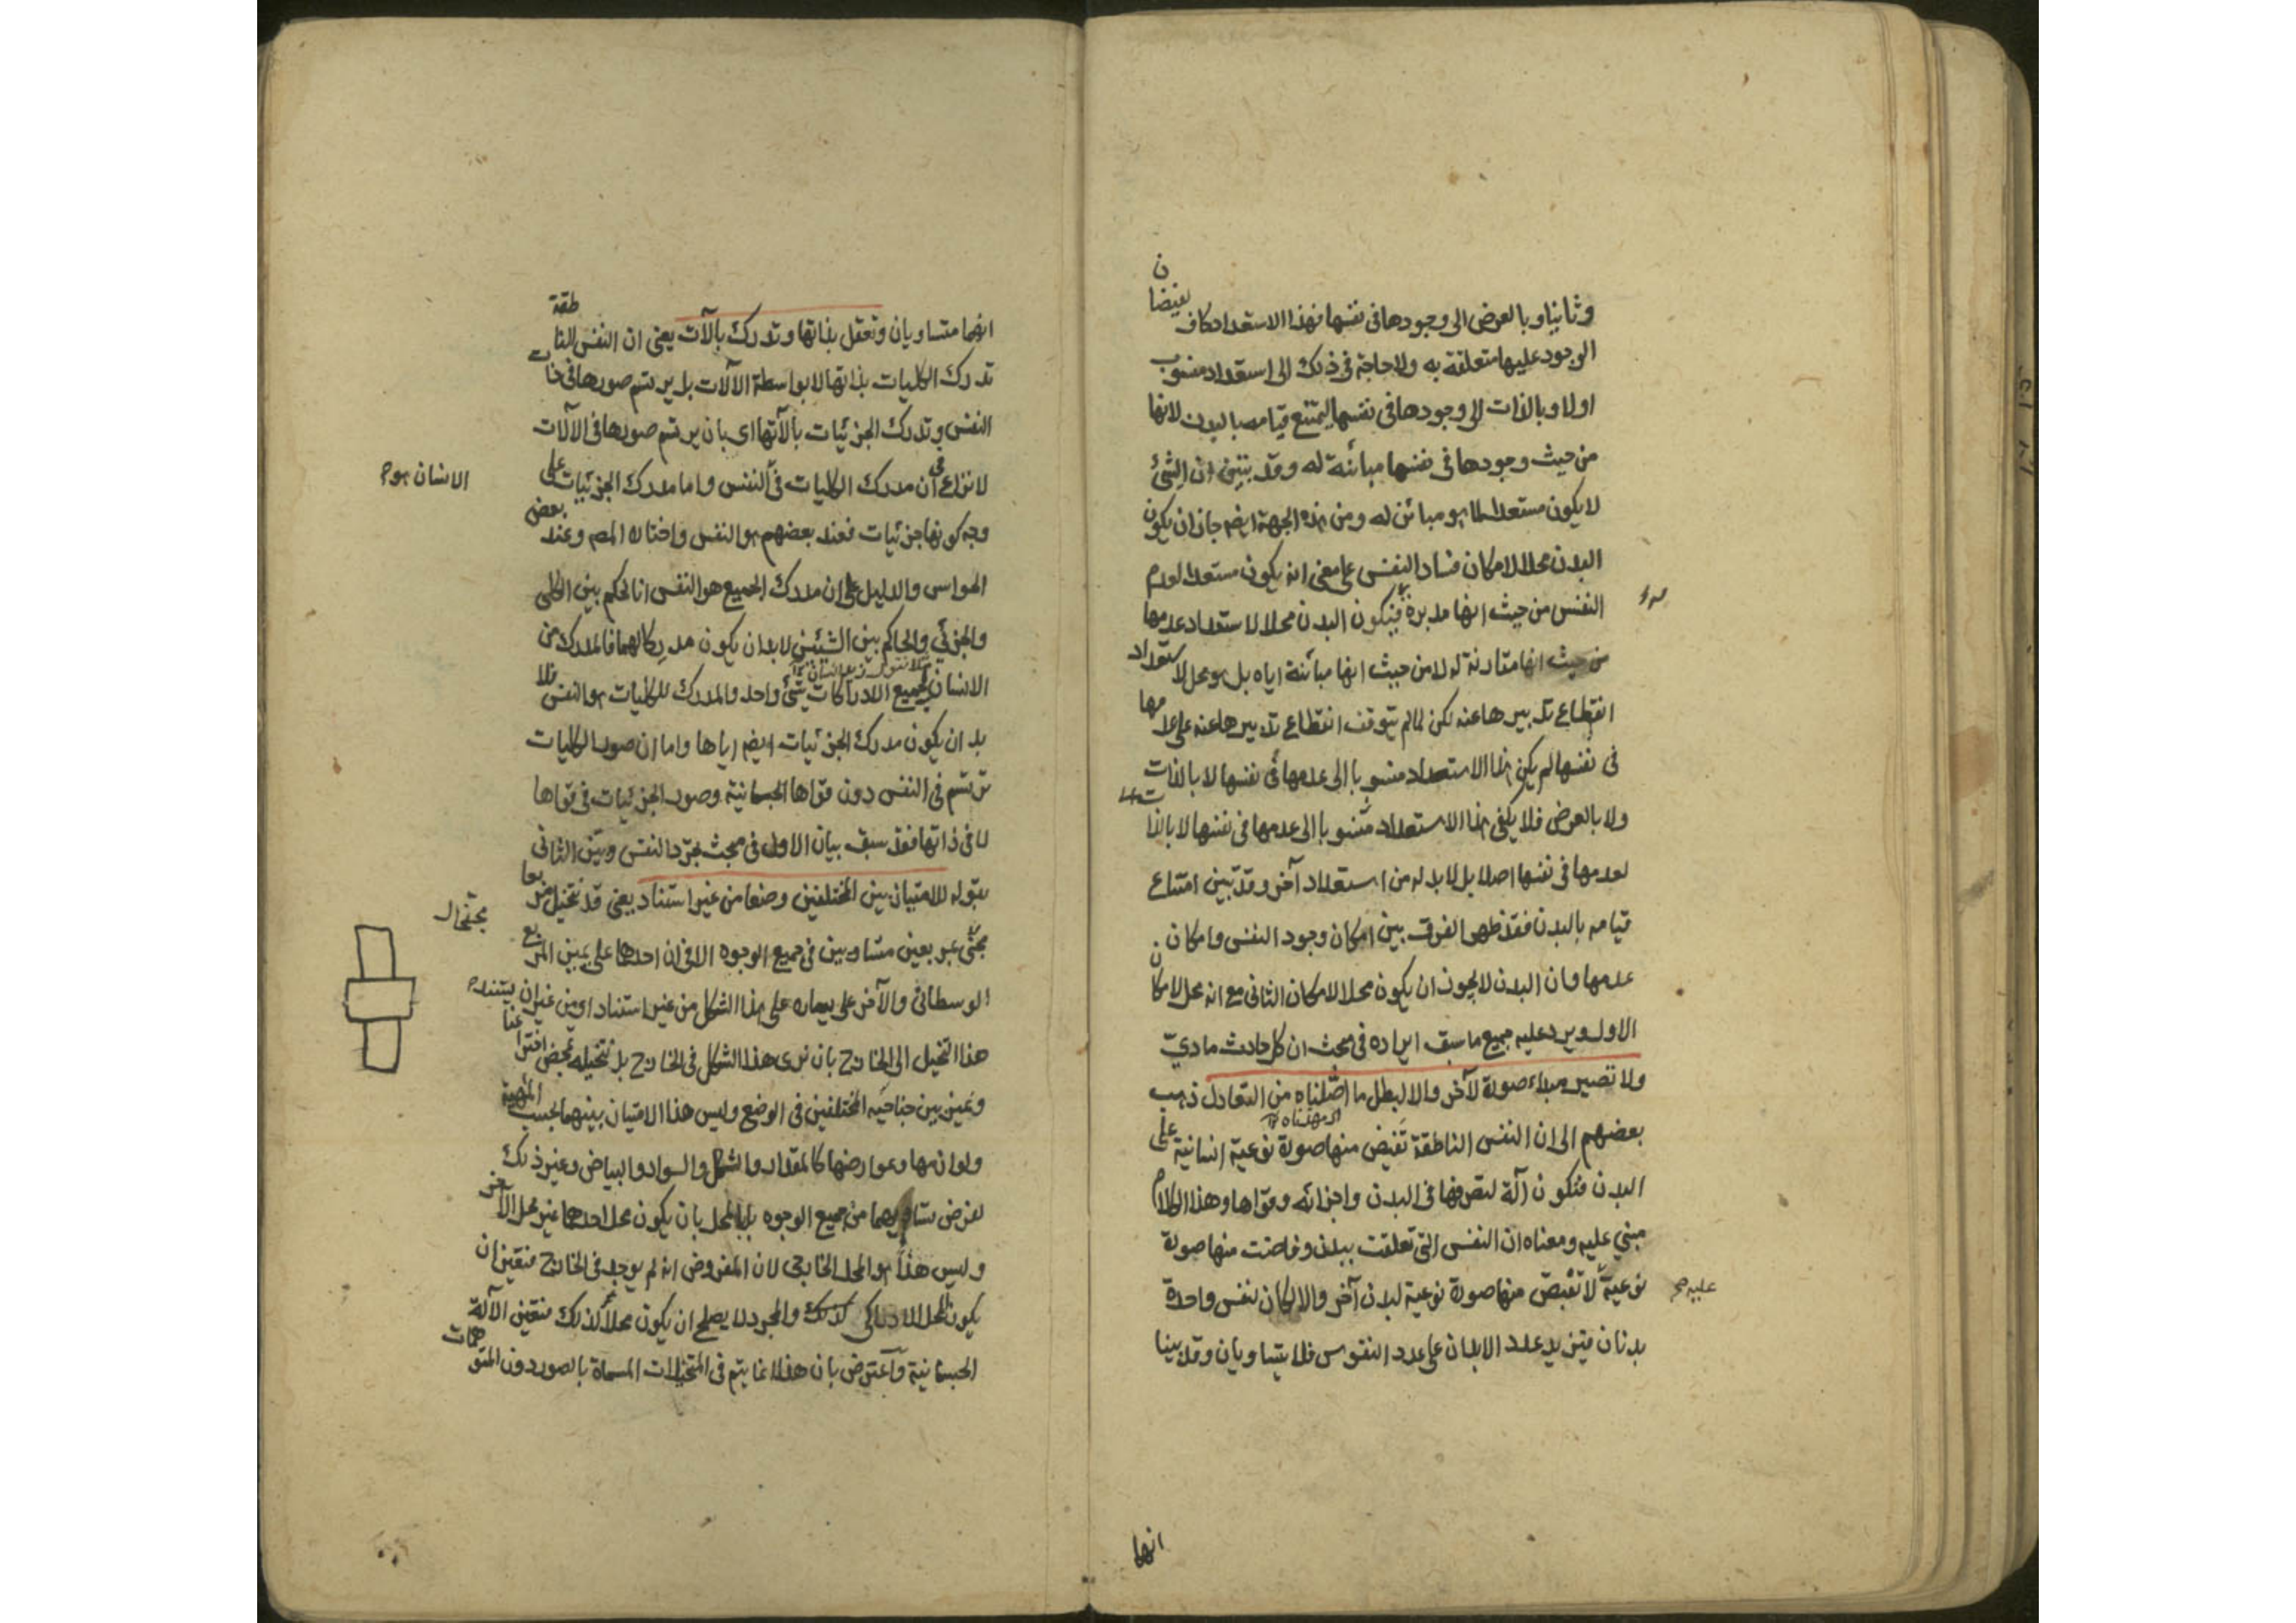 وثانيا وبالعرض الى وجودها فى نفسها فهذا الاستعداد كاف لفيضان
الوجود عليها متعلقة به ولا حاجة فى ذلك الى استعداد منسوب
اولا وبالذات الى وجودها فى نفسها ليمتنع قيامه بالبدن لانها
من حيث وجودها فى نفسها مبائنة له وقد تبين ان الشئ
لا يكون مستعدا لما هو مبائن له ومن هذه الجهة ايضم جاز ان يكون
البدن محلا لامكان فساد النفس على معنى انه يكون مستعدا لعدم
النفس من حيث انها مدبرة فيكون البدن محلا لاستعداد عدمها
من حيث انها مقارنة له لا من حيث انها مبائنة اياه بل هو محل لاستعداد
انقطاع تدبيرها عنه لكن لما لم يتوقف انقطاع تدبيرها عنه على عدمها
فى نفسها لم يكن هذا الاستعداد منسوبا الى عدمها فى نفسها لا بالذات
ولا بالعرض فلا يكفى هذا الاستعداد منسوبا الى عدمها فى نفسها لا بالذات
لعدمها فى نفسها اصلا بل لا بد له من استعداد آخر وقد تبين امتناع
قيامه بالبدن فقد ظهر الفرق بين امكان وجود النفس وامكان
عدمها وان البدن لا يجوز ان يكون محلا لامكان الثانى مع انه محل لامكان
الاول ويرد عليه جميع ما سبق ايراده فى مبحث ان كل حادث مادىّ
ولا تصير مبداء صورة لآخر والا لبطل ما اصّلناه من التعادل ذهب
اى مهدناه
بعضهم الى ان النفس الناطقة تفيض منها صورة نوعية انسانية على
البدن فتكون آلة لتصرفها فى البدن واجزائه وقواها وهذا الكلام
مبني عليه ومعناه ان النفس التى تعلقت ببدن وفاضت منها صورة
نوعية لا تفيض منها صورة نوعية لبدن آخر والا لكان لنفس واحدة
عليه
بدنان فيزيد عدد الابدان على عدد النفوس فلا يتساويان وقد بينا
انهما
انهما متساويان وتعقل بذاتها وتدرك بالآلات يعنى ان النفس الناطقة
تدرك الكليات بذاتها لا بواسطة الآلات بل يرتسم صورها فى ذات
النفس وتدرك الجزئيات بآلاتها اى بان يرتسم صورها فى الآلات
لا نزاع فى ان مدرك الكليات فى النفس واما مدرك الجزئيات على
الانسان هو
وجه كونها جزئيات فعند بعضهم هو النفس واختاره المصم وعند بعض
الحواس والدليل على ان مدرك الجميع هو النفس انا نحكم بين الكلى
والجزئي والحاكم بين الشيئين لا بد ان يكون مدركا لهما فالمدرك من
الانسان لجميع الادراكات شئ واحد والمدرك للكليات هو النفس فلا
بد ان يكون مدرك الجزئيات ايضم اياها واما ان صور الكليات
ترتسم فى النفس دون قواها الجسمانية وصور الجزئيات فى قواها
لا فى ذاتها فقد سبق بيان الاول فى مبحث تجرّد النفس وبيّن الثانى
بقوله للامتياز بين المختلفين وضعا من غير استناد يعنى قد نتخيل مربعا
مجنّحا بمربعين متساويين فى جميع الوجوه الا فى ان احدهما على يمين المربع
الوسطانى والآخر على يساره على هذا الشكل من غير استناد اى من غير ان يستند
هذا التخيل الى الخارج بان نرى هذا الشكل فى الخارج بل نتخيله بمحض اختراعنا
ونميز بين جناحيه المختلفين فى الوضع وليس هذا الامتياز بينهما بحسب المهية
ولوازمها وعوارضها كالمقدار والشكل والسواد والبياض وغير ذلك
لفرض تساويهما من جميع الوجوه بل بالمحل بان يكون محل احدهما غير محل الآخر
وليس هذا هو المحل الخارجى لان المفروض انه لم يوجد فى الخارج فتعين ان
يكون المحل الادراكى كذلك والمجرد لا يصلح ان يكون محلا لذلك فتعين الآلة
الجسمانية وآعترض بان هذا انما يتم فى المتخيلات المسماة بالصور دون المتوهمات